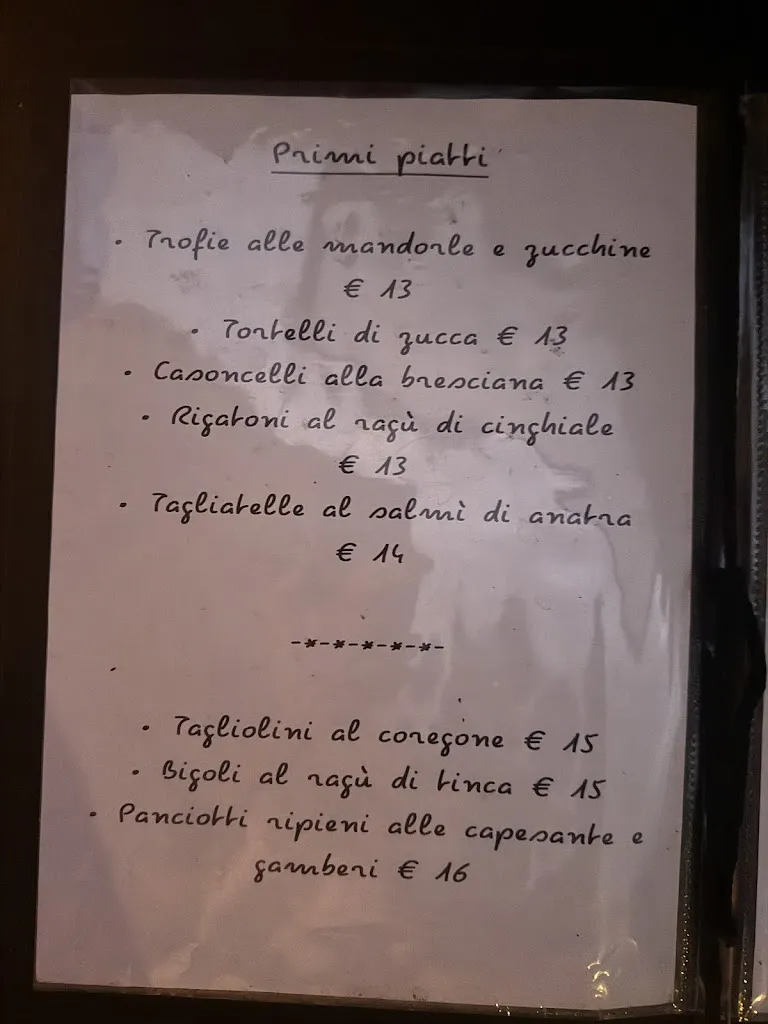 Primi piatti
• Trofie alle mandorle e zucchine
€ 13
• Tortelli di zucca € 13
• Casoncelli alla bresciana € 13
• Rigatoni al ragù di cinghiale
€ 13
• Tagliatelle al salmì di anatra
€ 14
-*-*-*-*-*-
• Tagliolini al coregone € 15
• Bigoli al ragù di tinca € 15
• Panciotti ripieni alle capesante e
gamberi € 16